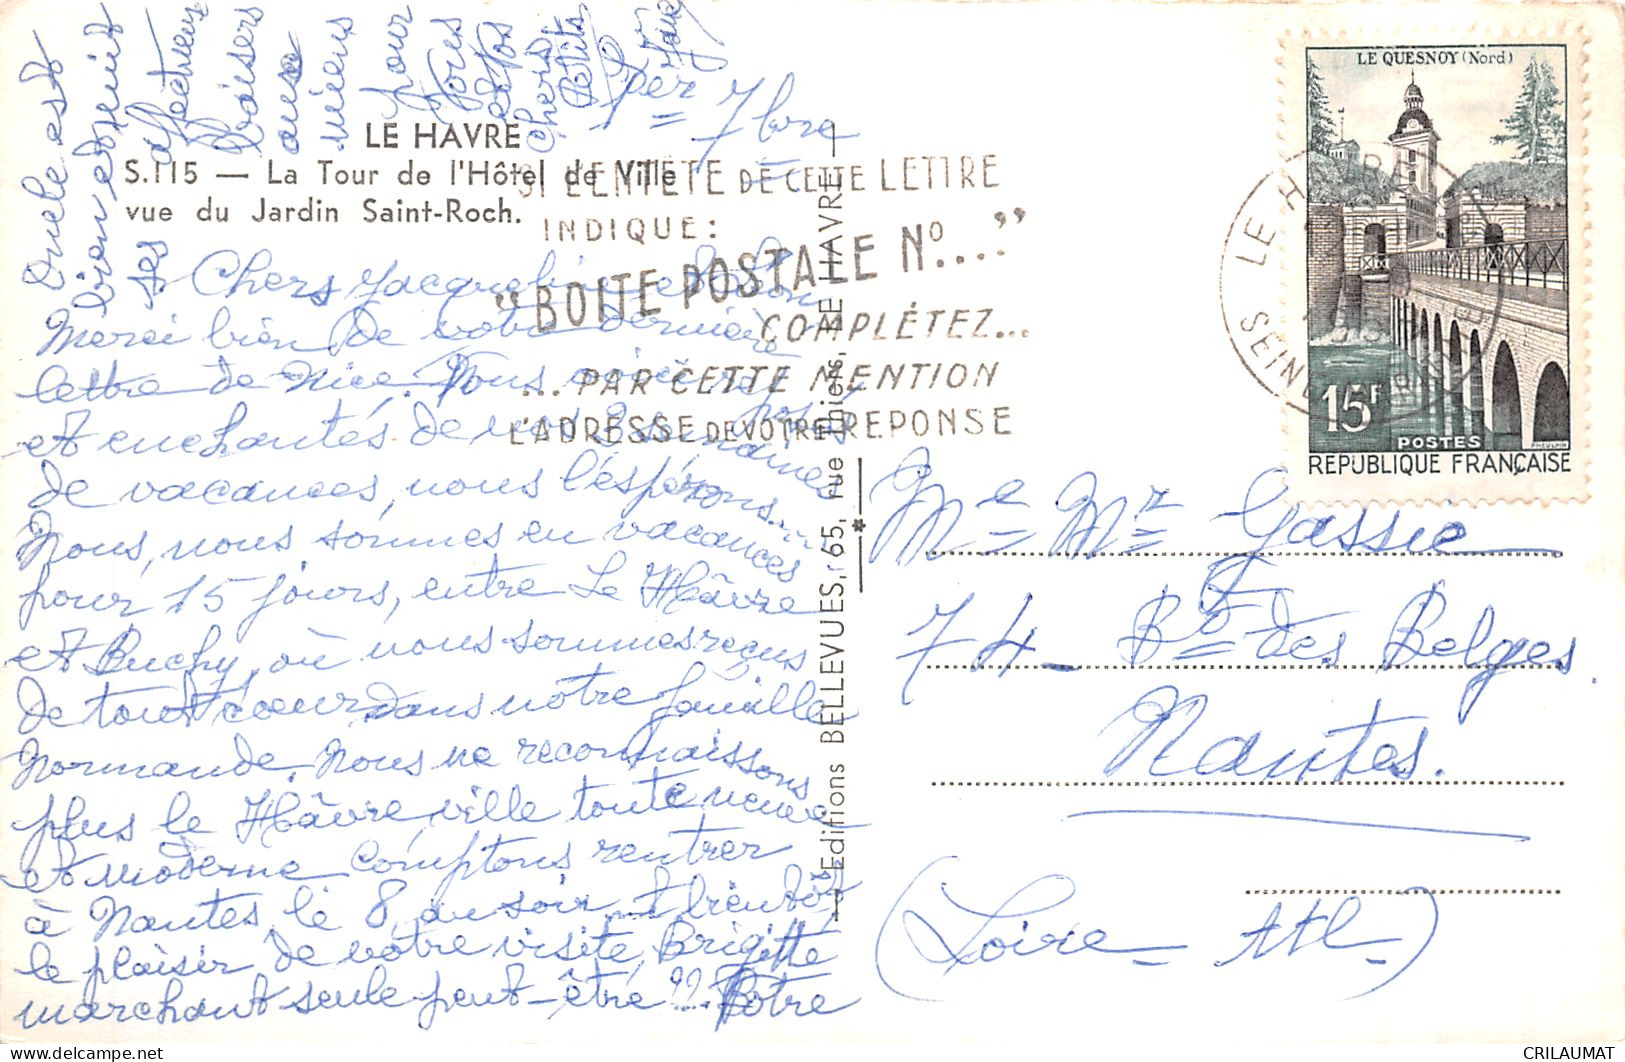 LE HAVRE
S.115 — La Tour de l'Hôtel de Ville
vue du Jardin Saint-Roch.
1er 7bre
Chers Jacqueline et
Merci bien de votre dernière
lettre de Nice. Vous
et enchantés de vos 3 semaines
de vacances, nous l'espérons...
Nous, nous sommes en vacances
pour 15 jours, entre Le Hâvre
et Buchy, où nous sommes reçus
de tout coeur dans notre famille
Normande. Nous ne reconnaissons
plus le Hâvre, ville toute neuve
et moderne. Comptons rentrer
à Nantes, le 8 au soir. A bientôt
le plaisir de votre visite, Brigitte
marchant seule peut-être ?? Votre
Oncle est
bien
ses affectueux
baisers
aux
miens
pour
Vous
chers
petits
Editions BELLEVUES, 165, rue Thiers, LE HAVRE
SI L'ENTÊTE DE CETTE LETTRE
INDIQUE:
"BOITE POSTALE No...."
COMPLÉTEZ...
... PAR CETTE MENTION
L'ADRESSE DE VOTRE REPONSE
LE HAVRE
SEINE
LE QUESNOY (Nord)
15F
POSTES
PHEULPIN
RÉPUBLIQUE FRANÇAISE
Me Mr Gassie
74 - Bd des Belges.
Nantes.
(Loire - Atl -)
CRILAUMAT